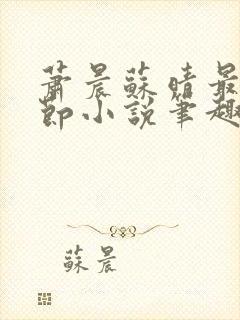 蕭晨蘇晴最
節小說筆趣
蘇晨